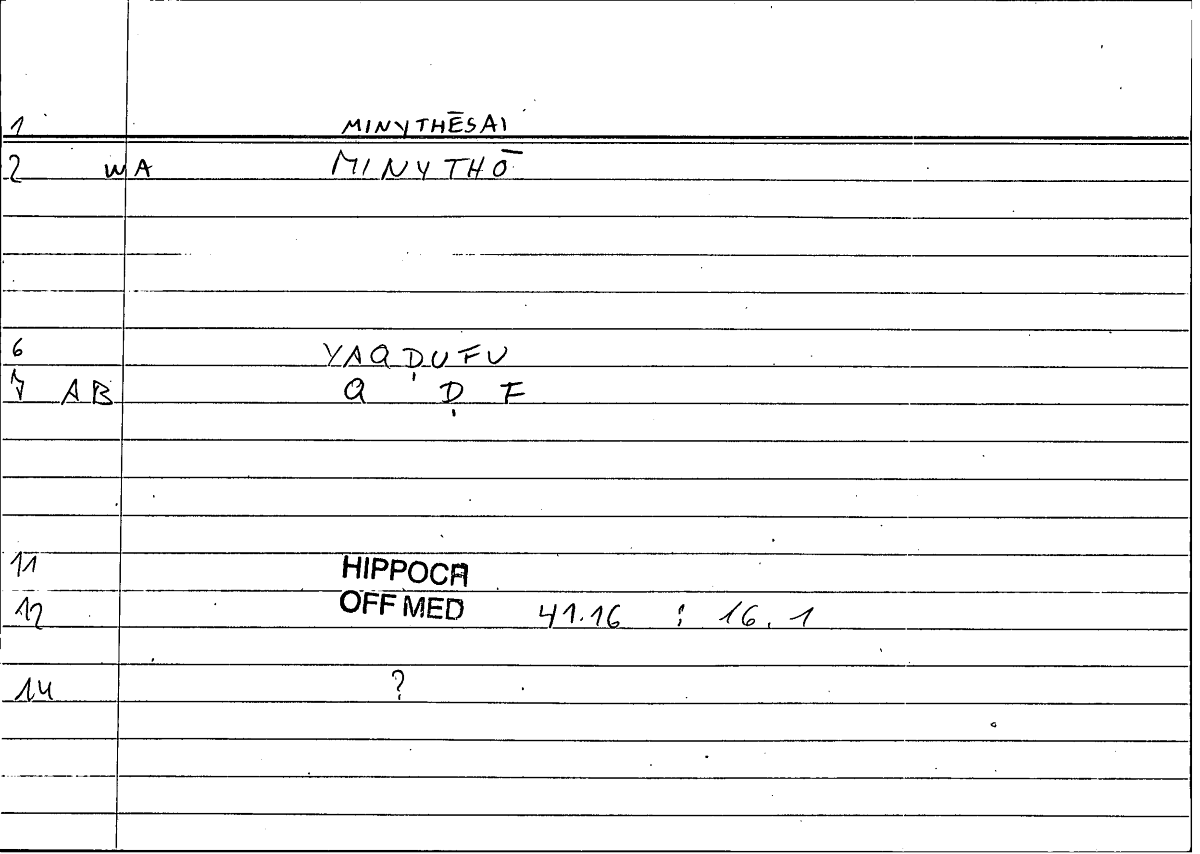 1 MINYTHĒSAI
2 WA MINYTHŌ
6 YAQḌUFU
7 AB Q Ḍ F
11 HIPPOCR
12 OFF MED 41.16 : 16.1
14 ?